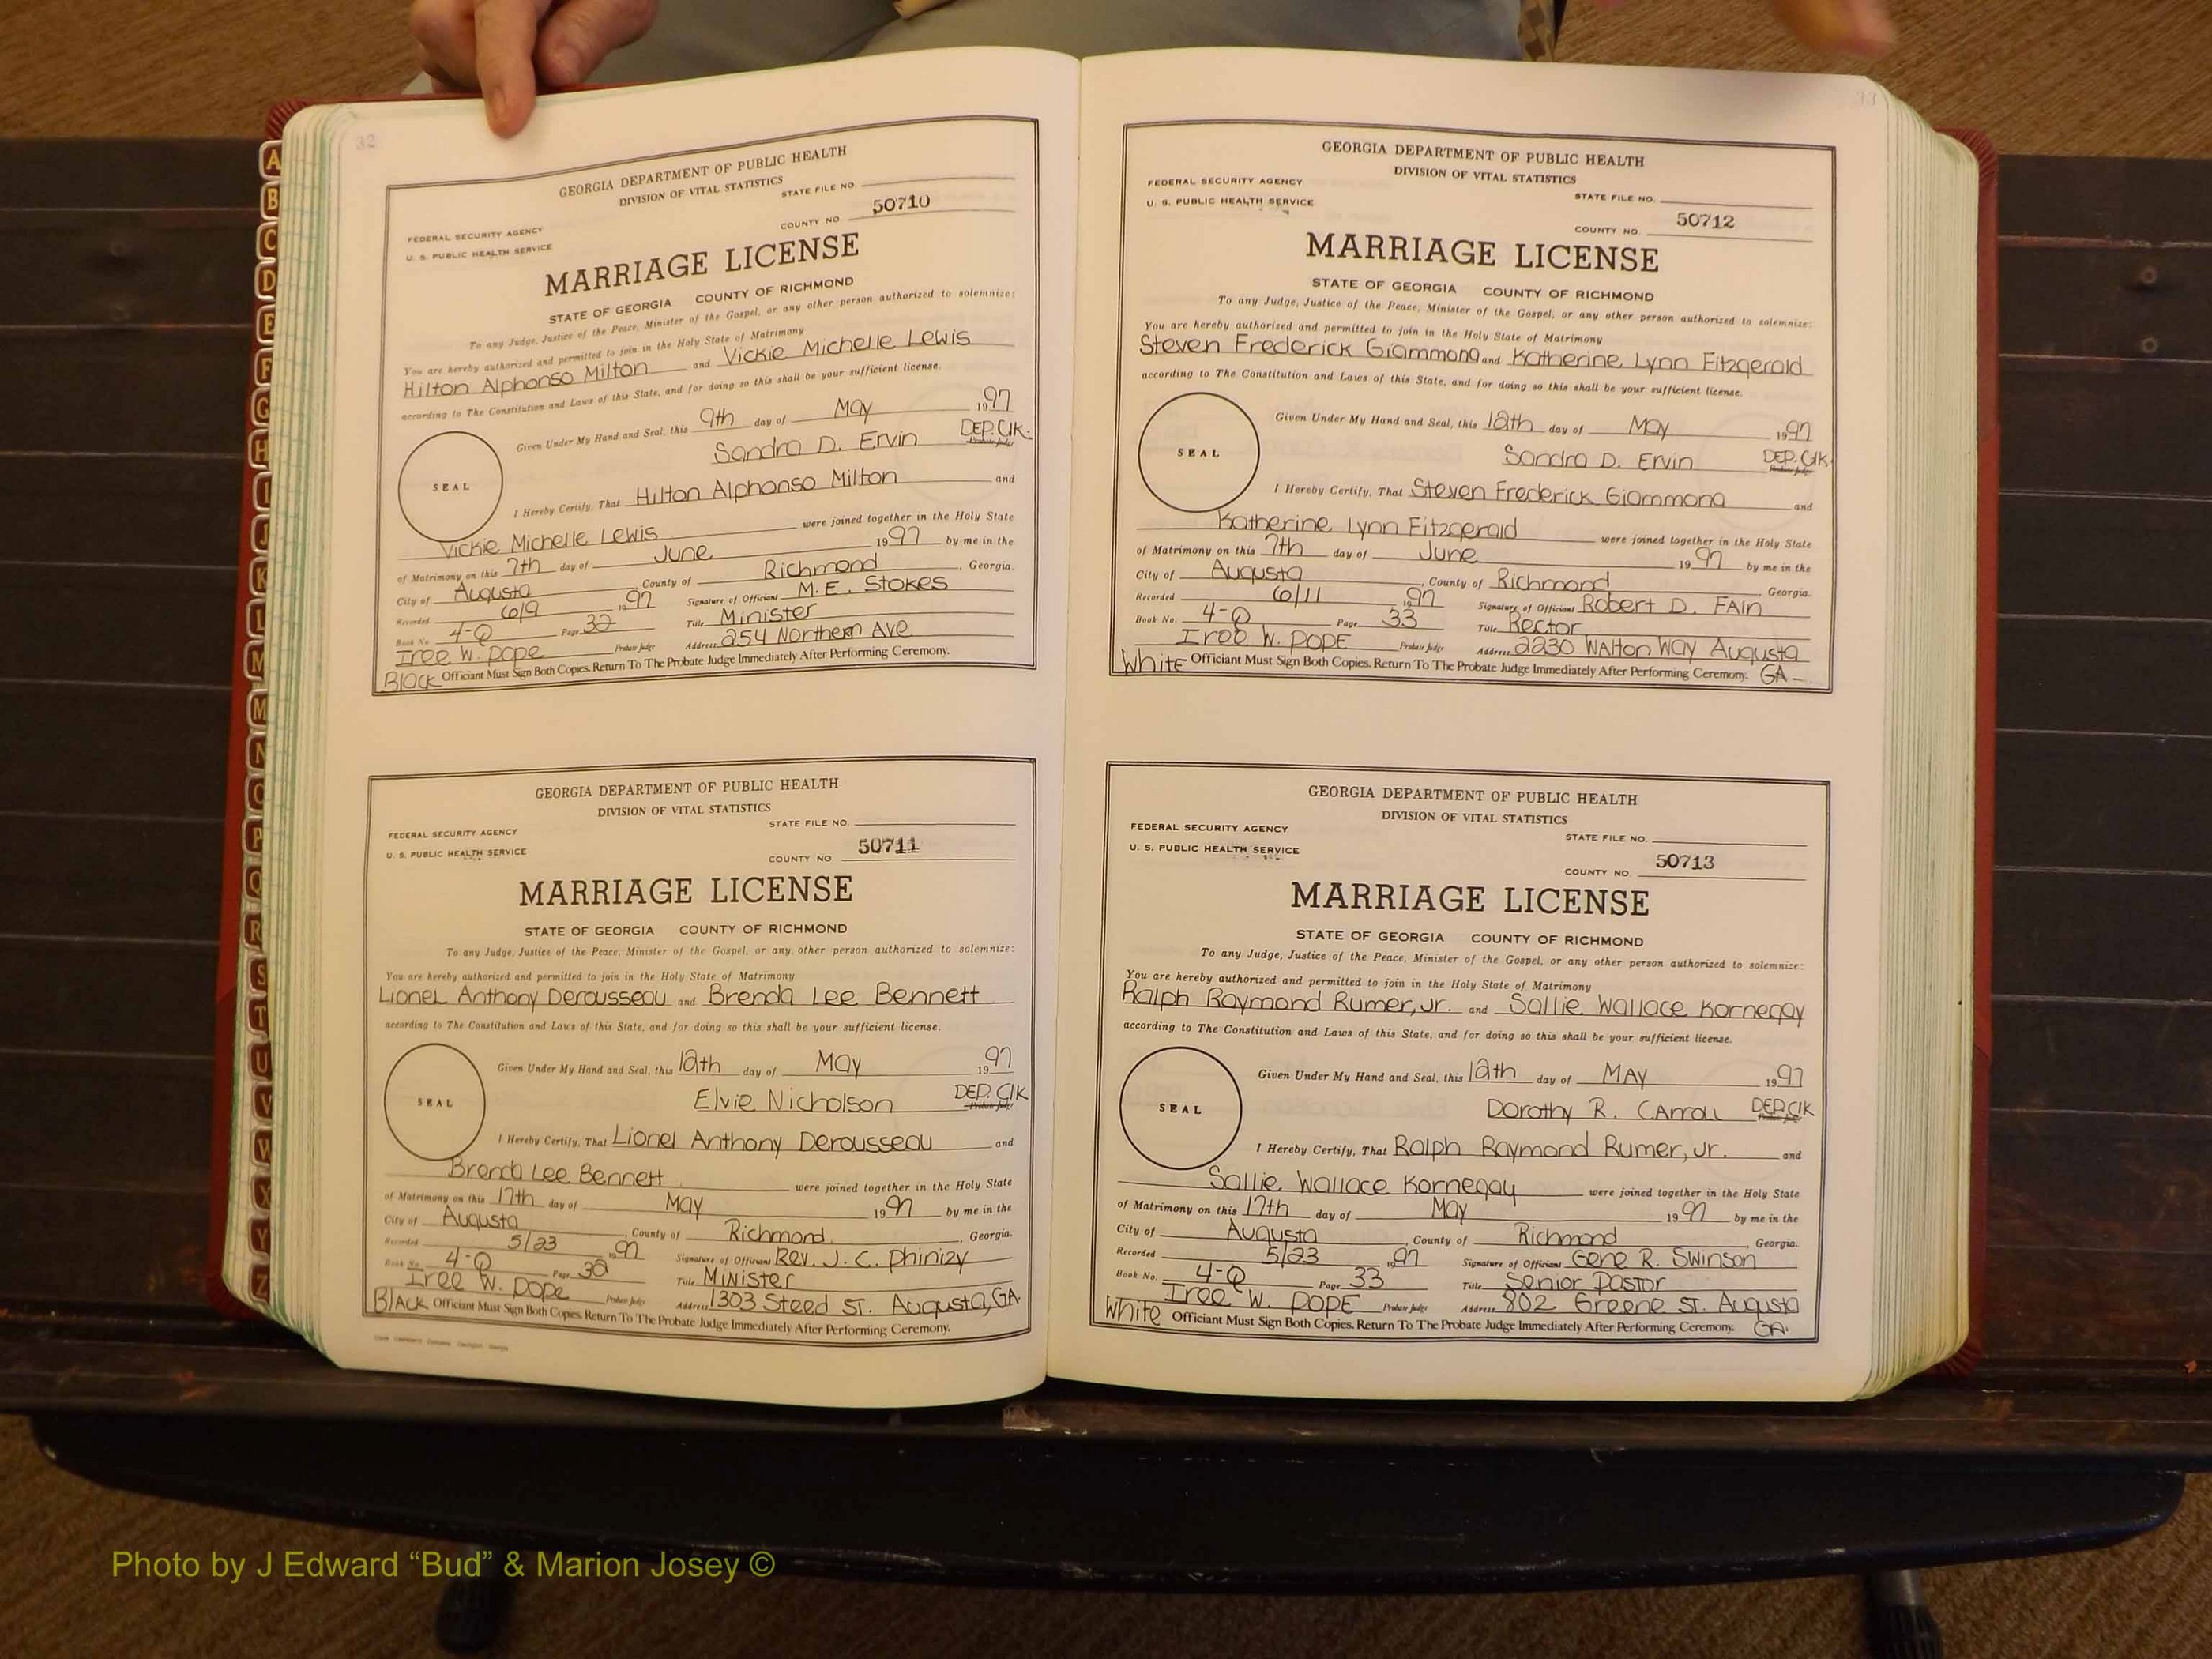 A
B
C
D
E
F
G
H
I
J
K
L
M
M
N
O
P
Q
R
S
T
U
V
W
X
Y
Z
32
GEORGIA DEPARTMENT OF PUBLIC HEALTH
DIVISION OF VITAL STATISTICS
STATE FILE NO.
FEDERAL SECURITY AGENCY
U. S. PUBLIC HEALTH SERVICE
COUNTY NO. 50710
MARRIAGE LICENSE
STATE OF GEORGIA COUNTY OF RICHMOND
To any Judge, Justice of the Peace, Minister of the Gospel, or any other person authorized to solemnize:
You are hereby authorized and permitted to join in the Holy State of Matrimony
Hilton Alphonso Milton and Vickie Michelle Lewis
according to The Constitution and Laws of this State, and for doing so this shall be your sufficient license.
Given Under My Hand and Seal, this 9th day of May 1997
Sandra D. Ervin DEP. Clk.
Probate Judge
SEAL
I Hereby Certify, That Hilton Alphonso Milton and
Vickie Michelle Lewis were joined together in the Holy State
of Matrimony on this 7th day of June 1997 by me in the
City of Augusta, County of Richmond, Georgia.
Recorded 6/9 1997 Signature of Officiant M.E. Stokes
Book No. 4-Q Page 32 Title Minister
Iree W. Pope Probate Judge Address 254 Northern Ave
Black Officiant Must Sign Both Copies. Return To The Probate Judge Immediately After Performing Ceremony.
GEORGIA DEPARTMENT OF PUBLIC HEALTH
DIVISION OF VITAL STATISTICS
STATE FILE NO.
FEDERAL SECURITY AGENCY
U. S. PUBLIC HEALTH SERVICE
COUNTY NO. 50711
MARRIAGE LICENSE
STATE OF GEORGIA COUNTY OF RICHMOND
To any Judge, Justice of the Peace, Minister of the Gospel, or any other person authorized to solemnize:
You are hereby authorized and permitted to join in the Holy State of Matrimony
Lionel Anthony Derousseau and Brenda Lee Bennett
according to The Constitution and Laws of this State, and for doing so this shall be your sufficient license.
Given Under My Hand and Seal, this 12th day of May 1997
Elvie Nicholson DEP. Clk
Probate Judge
SEAL
I Hereby Certify, That Lionel Anthony Derousseau and
Brenda Lee Bennett were joined together in the Holy State
of Matrimony on this 17th day of May 1997 by me in the
City of Augusta, County of Richmond, Georgia.
Recorded 5/23 1997 Signature of Officiant Rev. J. C. Phinizy
Book No. 4-Q Page 32 Title Minister
Iree W. Pope Probate Judge Address 1303 Steed St. Augusta, GA.
Black Officiant Must Sign Both Copies. Return To The Probate Judge Immediately After Performing Ceremony.
33
GEORGIA DEPARTMENT OF PUBLIC HEALTH
DIVISION OF VITAL STATISTICS
FEDERAL SECURITY AGENCY
STATE FILE NO.
U. S. PUBLIC HEALTH SERVICE
COUNTY NO. 50712
MARRIAGE LICENSE
STATE OF GEORGIA COUNTY OF RICHMOND
To any Judge, Justice of the Peace, Minister of the Gospel, or any other person authorized to solemnize:
You are hereby authorized and permitted to join in the Holy State of Matrimony
Steven Frederick Giammona and Katherine Lynn Fitzgerald
according to the Constitution and Laws of this State, and for doing so this shall be your sufficient license.
Given Under My Hand and Seal, this 12th day of May 1997
Sandra D. Ervin DEP. Clk.
Probate Judge
SEAL
I Hereby Certify, That Steven Frederick Giammona and
Katherine Lynn Fitzgerald were joined together in the Holy State
of Matrimony on this 7th day of June 1997 by me in the
City of Augusta, County of Richmond, Georgia.
Recorded 6/11 1997 Signature of Officiant Robert D. Fain
Book No. 4-Q Page 33 Title Rector
Iree W. Pope Probate Judge Address 2230 Walton Way Augusta
White Officiant Must Sign Both Copies. Return To The Probate Judge Immediately After Performing Ceremony. GA-
GEORGIA DEPARTMENT OF PUBLIC HEALTH
DIVISION OF VITAL STATISTICS
FEDERAL SECURITY AGENCY
STATE FILE NO.
U. S. PUBLIC HEALTH SERVICE
COUNTY NO. 50713
MARRIAGE LICENSE
STATE OF GEORGIA COUNTY OF RICHMOND
To any Judge, Justice of the Peace, Minister of the Gospel, or any other person authorized to solemnize:
You are hereby authorized and permitted to join in the Holy State of Matrimony
Ralph Raymond Rumer, Jr. and Sallie Wallace Kornegay
according to The Constitution and Laws of this State, and for doing so this shall be your sufficient license.
Given Under My Hand and Seal, this 12th day of MAY 1997
Dorothy R. Carroll DEP. Clk
Probate Judge
SEAL
I Hereby Certify, That Ralph Raymond Rumer, Jr. and
Sallie Wallace Kornegay were joined together in the Holy State
of Matrimony on this 17th day of May 1997 by me in the
City of Augusta, County of Richmond, Georgia.
Recorded 5/23 1997 Signature of Officiant Gene R. Swinson
Book No. 4-Q Page 33 Title Senior Pastor
Iree W. Pope Probate Judge Address 802 Greene St. Augusta
White Officiant Must Sign Both Copies. Return To The Probate Judge Immediately After Performing Ceremony. GA.
Photo by J Edward “Bud” & Marion Josey ©